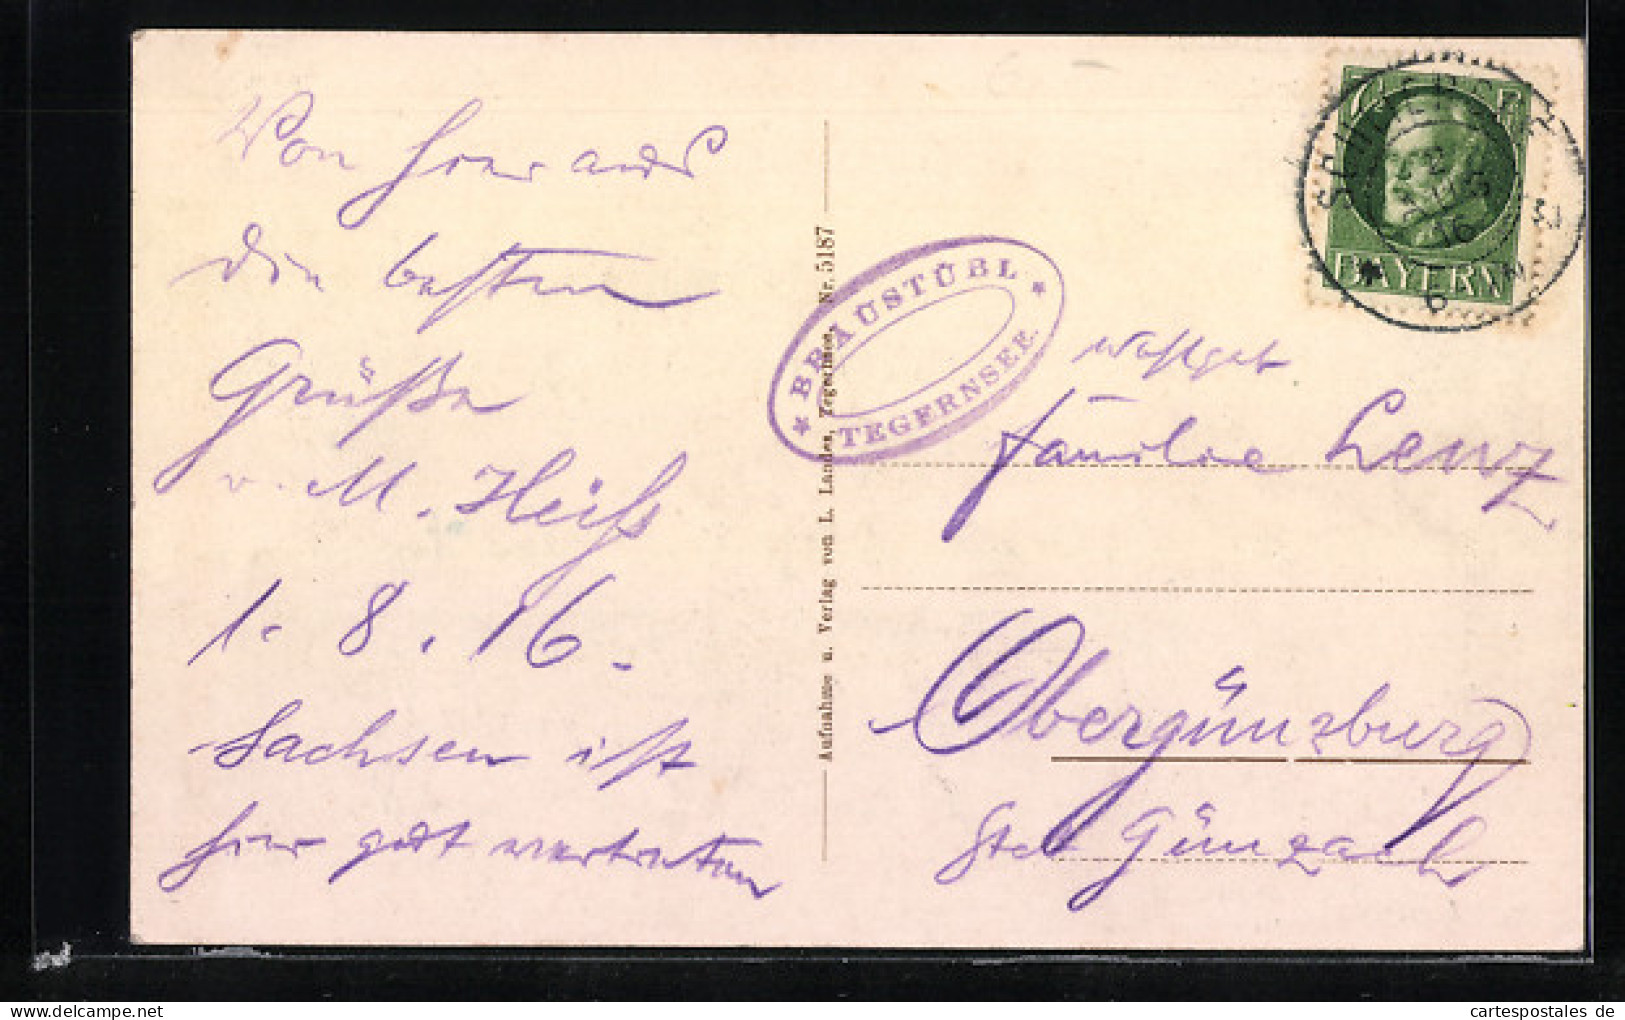 Von hier aus
die besten
Grüße
v. M. Heiß
1. 8. 16.
Sachsen ist
hier gut vertreten
Aufnahme u. Verlag von L. Landes, Tegernsee, Nr. 5187
BRAUSTÜBL
TEGERNSEE.
BAYERN
2
AUG
16
Familie Lenz
Obergünzburg
Stat Günzach
cartespostales de